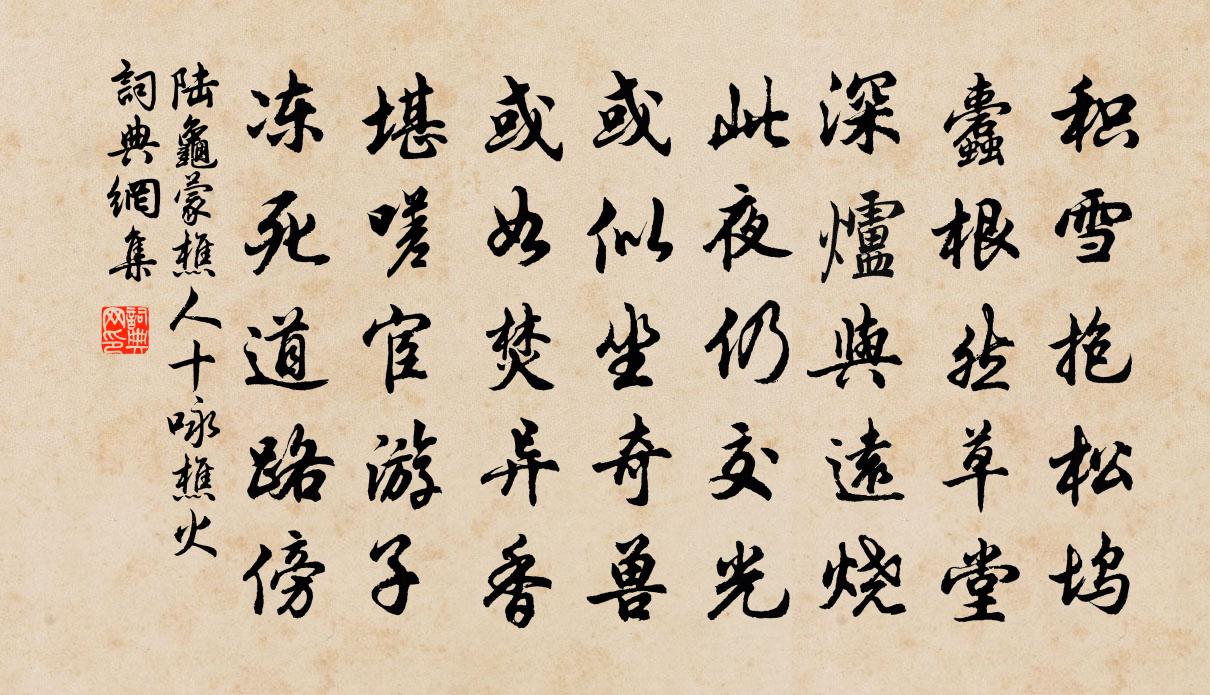 积雪抱松坞
蠹根然草堂
深爐與遠烧
此夜仍交光
或似坐奇兽
或如焚异香
堪嗟宦游子
冻死道路傍
陆龜蒙樵人十咏樵火
詞典網集
詞典网印